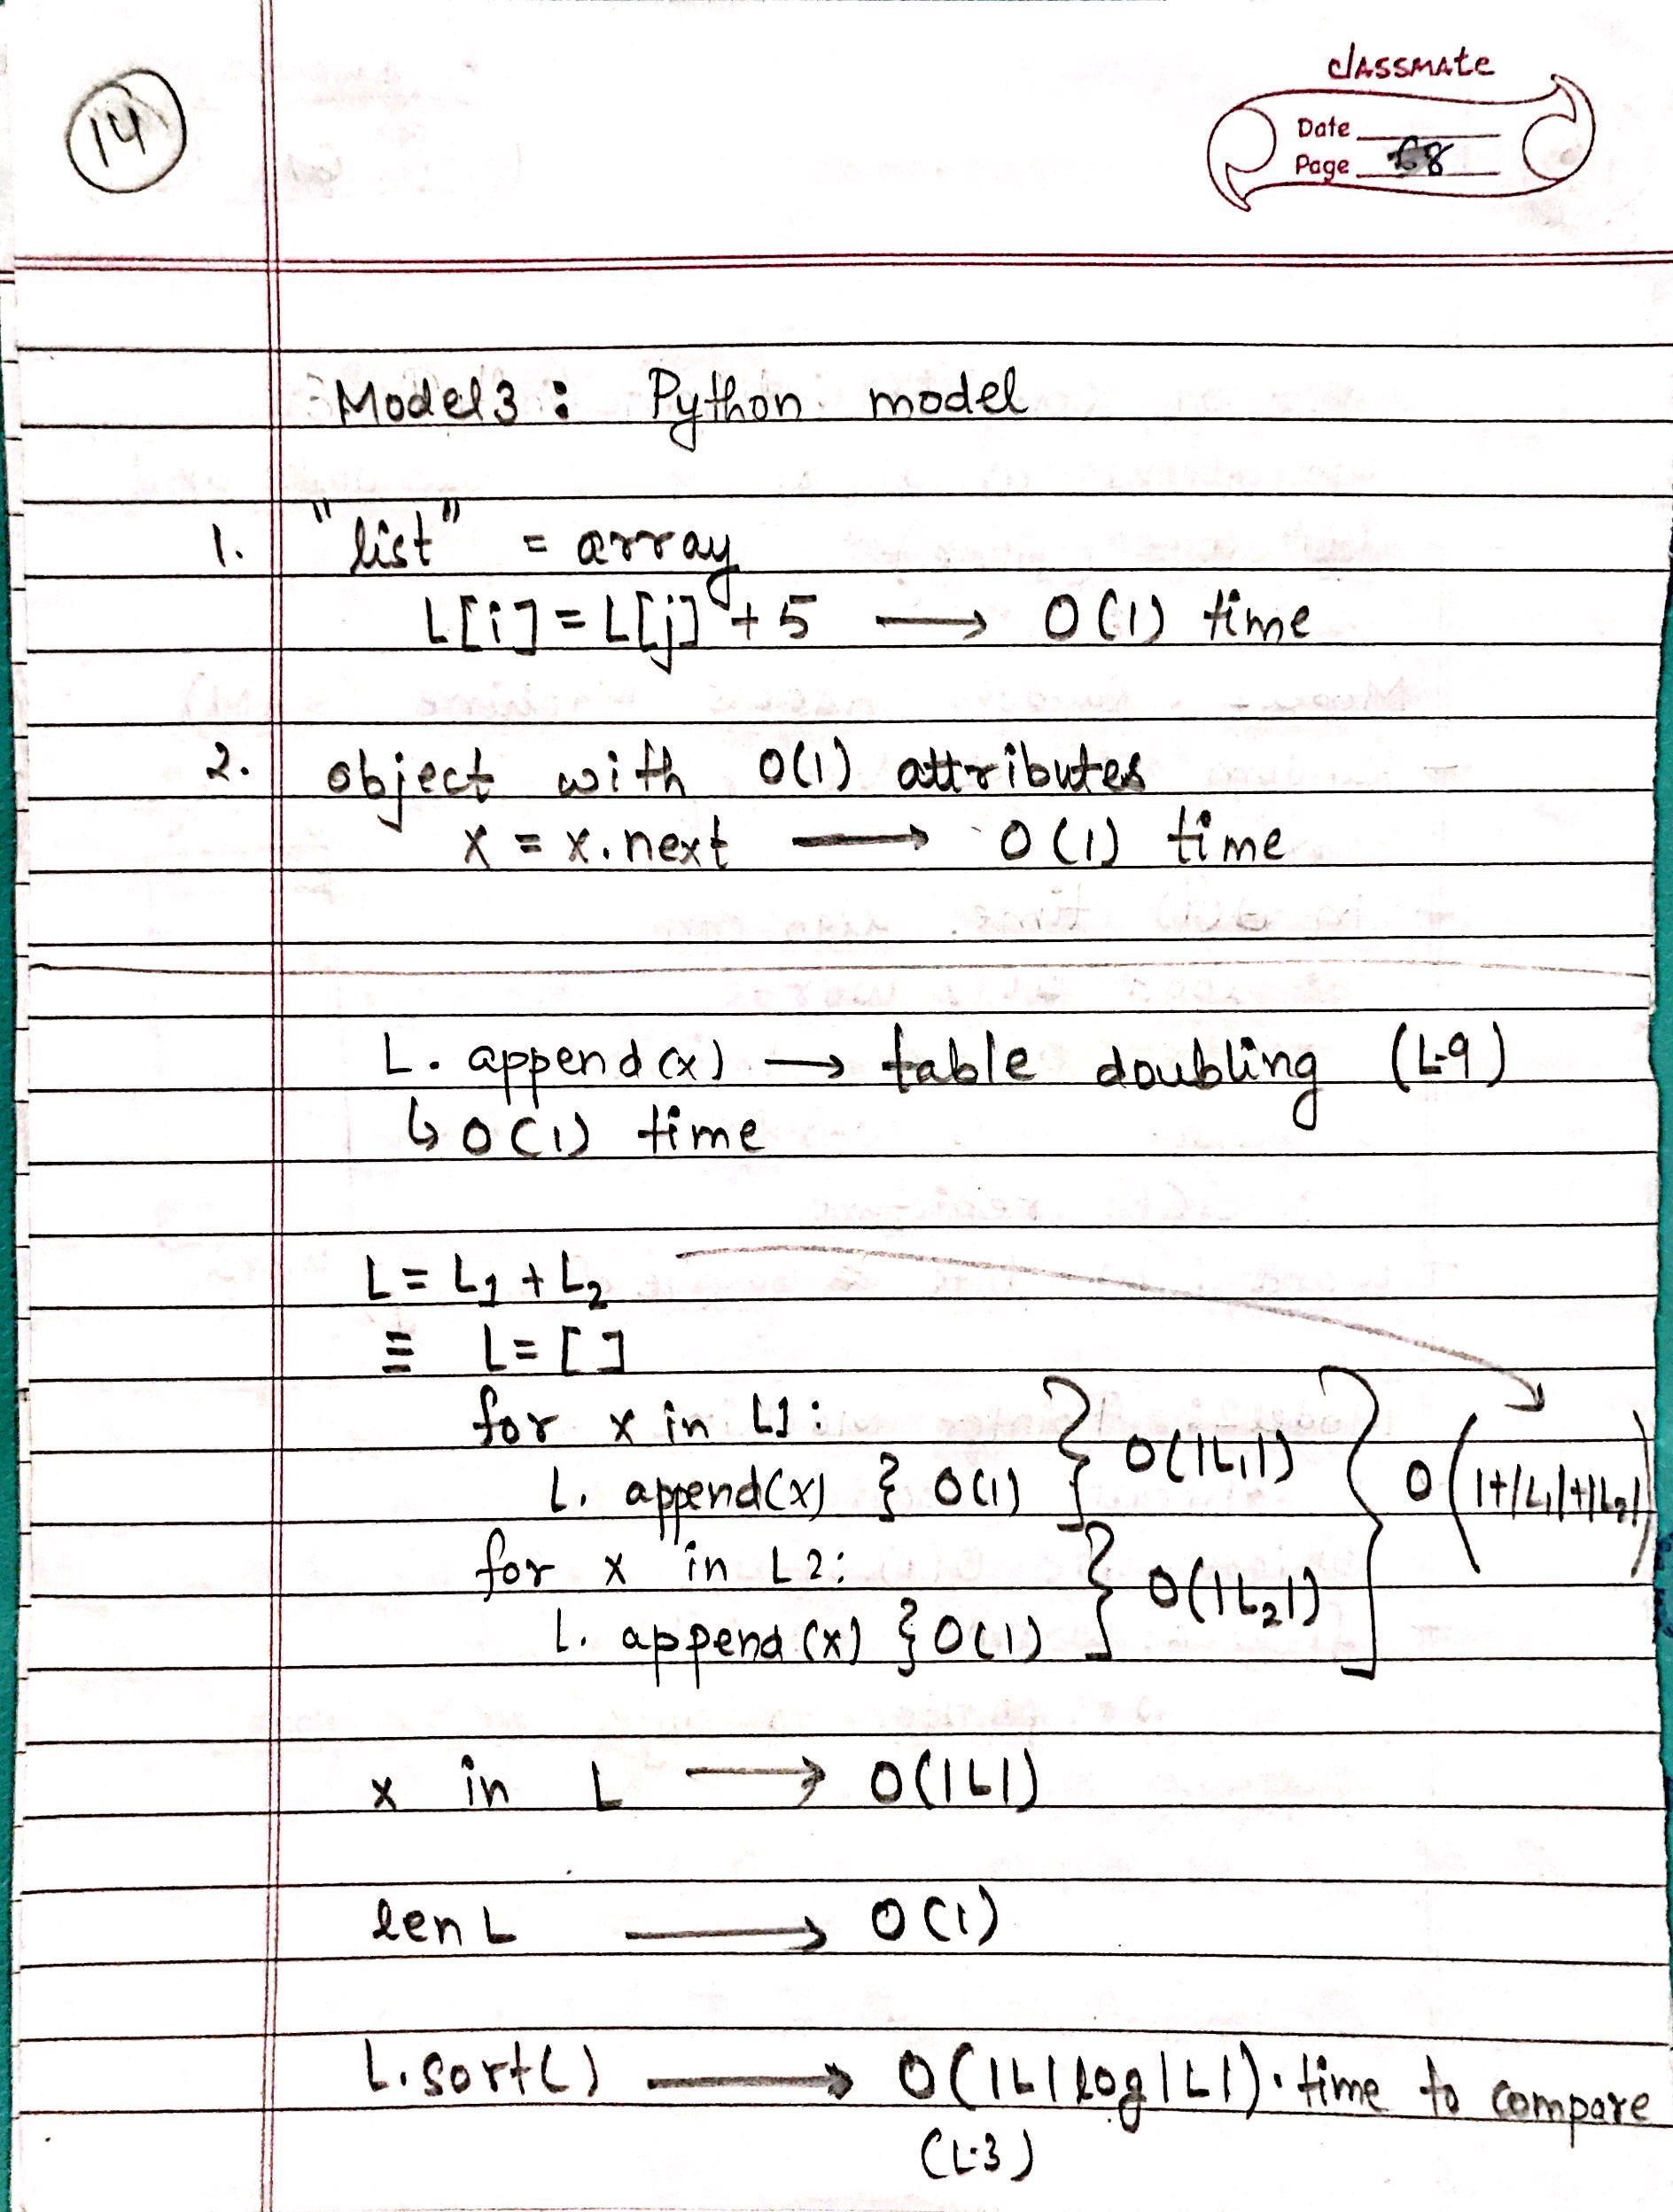 14
classmate
Date
Page 8
Model 3 : Python model
1. "list" = array
L[i] = L[j] + 5 → O(1) time
2. object with O(1) attributes
x = x.next → O(1) time
L. append(x) → table doubling (L-9)
↳ O(1) time
L = L1 + L2
≡ L = [ ]
for x in L1 : } O(|L1|) } O(1+|L1|+|L2|)
L. append(x) } O(1)
for x in L2: } O(|L2|)
L. append (x) } O(1)
x in L → O(|L|)
len L → O(1)
L.sort() → O(|L| log |L|) · time to compare
(L-3)